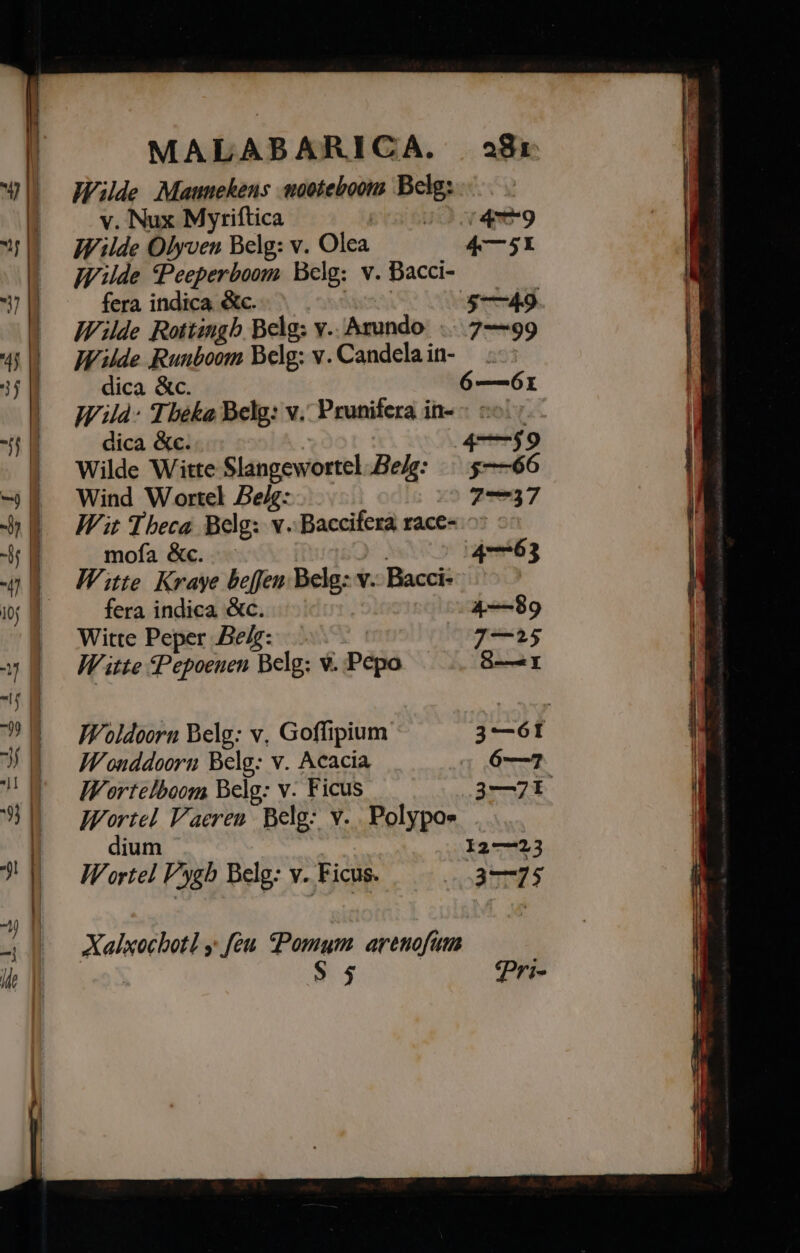 MALABARICA. 281
Wilde Mannekens nooteboom Belg:
v. Nux Myriſtica 4—9
Wilde Olyven Belg: v. Olea 4—51
Wilde Peeperboom Belg: v. Bacci-
fera indica &c. 5—49
Wilde Rottingh Belg: v. Arundo 7—99
Wilde Runboom Belg: v. Candela in-
dica &c. 6—61
Wild: Theka Belg: v. Prunifera in-
dica &c. 4—59
Wilde Witte Slangewortel Belg: 5—66
Wind Wortel Belg: 7—37
Wit Theca Belg: v. Baccifera race-
moſa &c. 4—63
Witte Kraye beſſen Belg: v. Bacci-
fera indica &c. 4—89
Witte Peper Belg: 7—25
Witte Pepoenen Belg: v. Pepo 8—1
Woldoorn Belg: v. Goſſipium 3—61
Wonddoorn Belg: v. Acacia 6—7
Wortelboom Belg: v. Ficus 3—71
Wortel Vaeren Belg: v. Polypo-
dium 12—23
Wortel Vygh Belg: v. Ficus. 3—75
Xalxochotl, ſeu Pomum arenoſum
S 5 Pri-